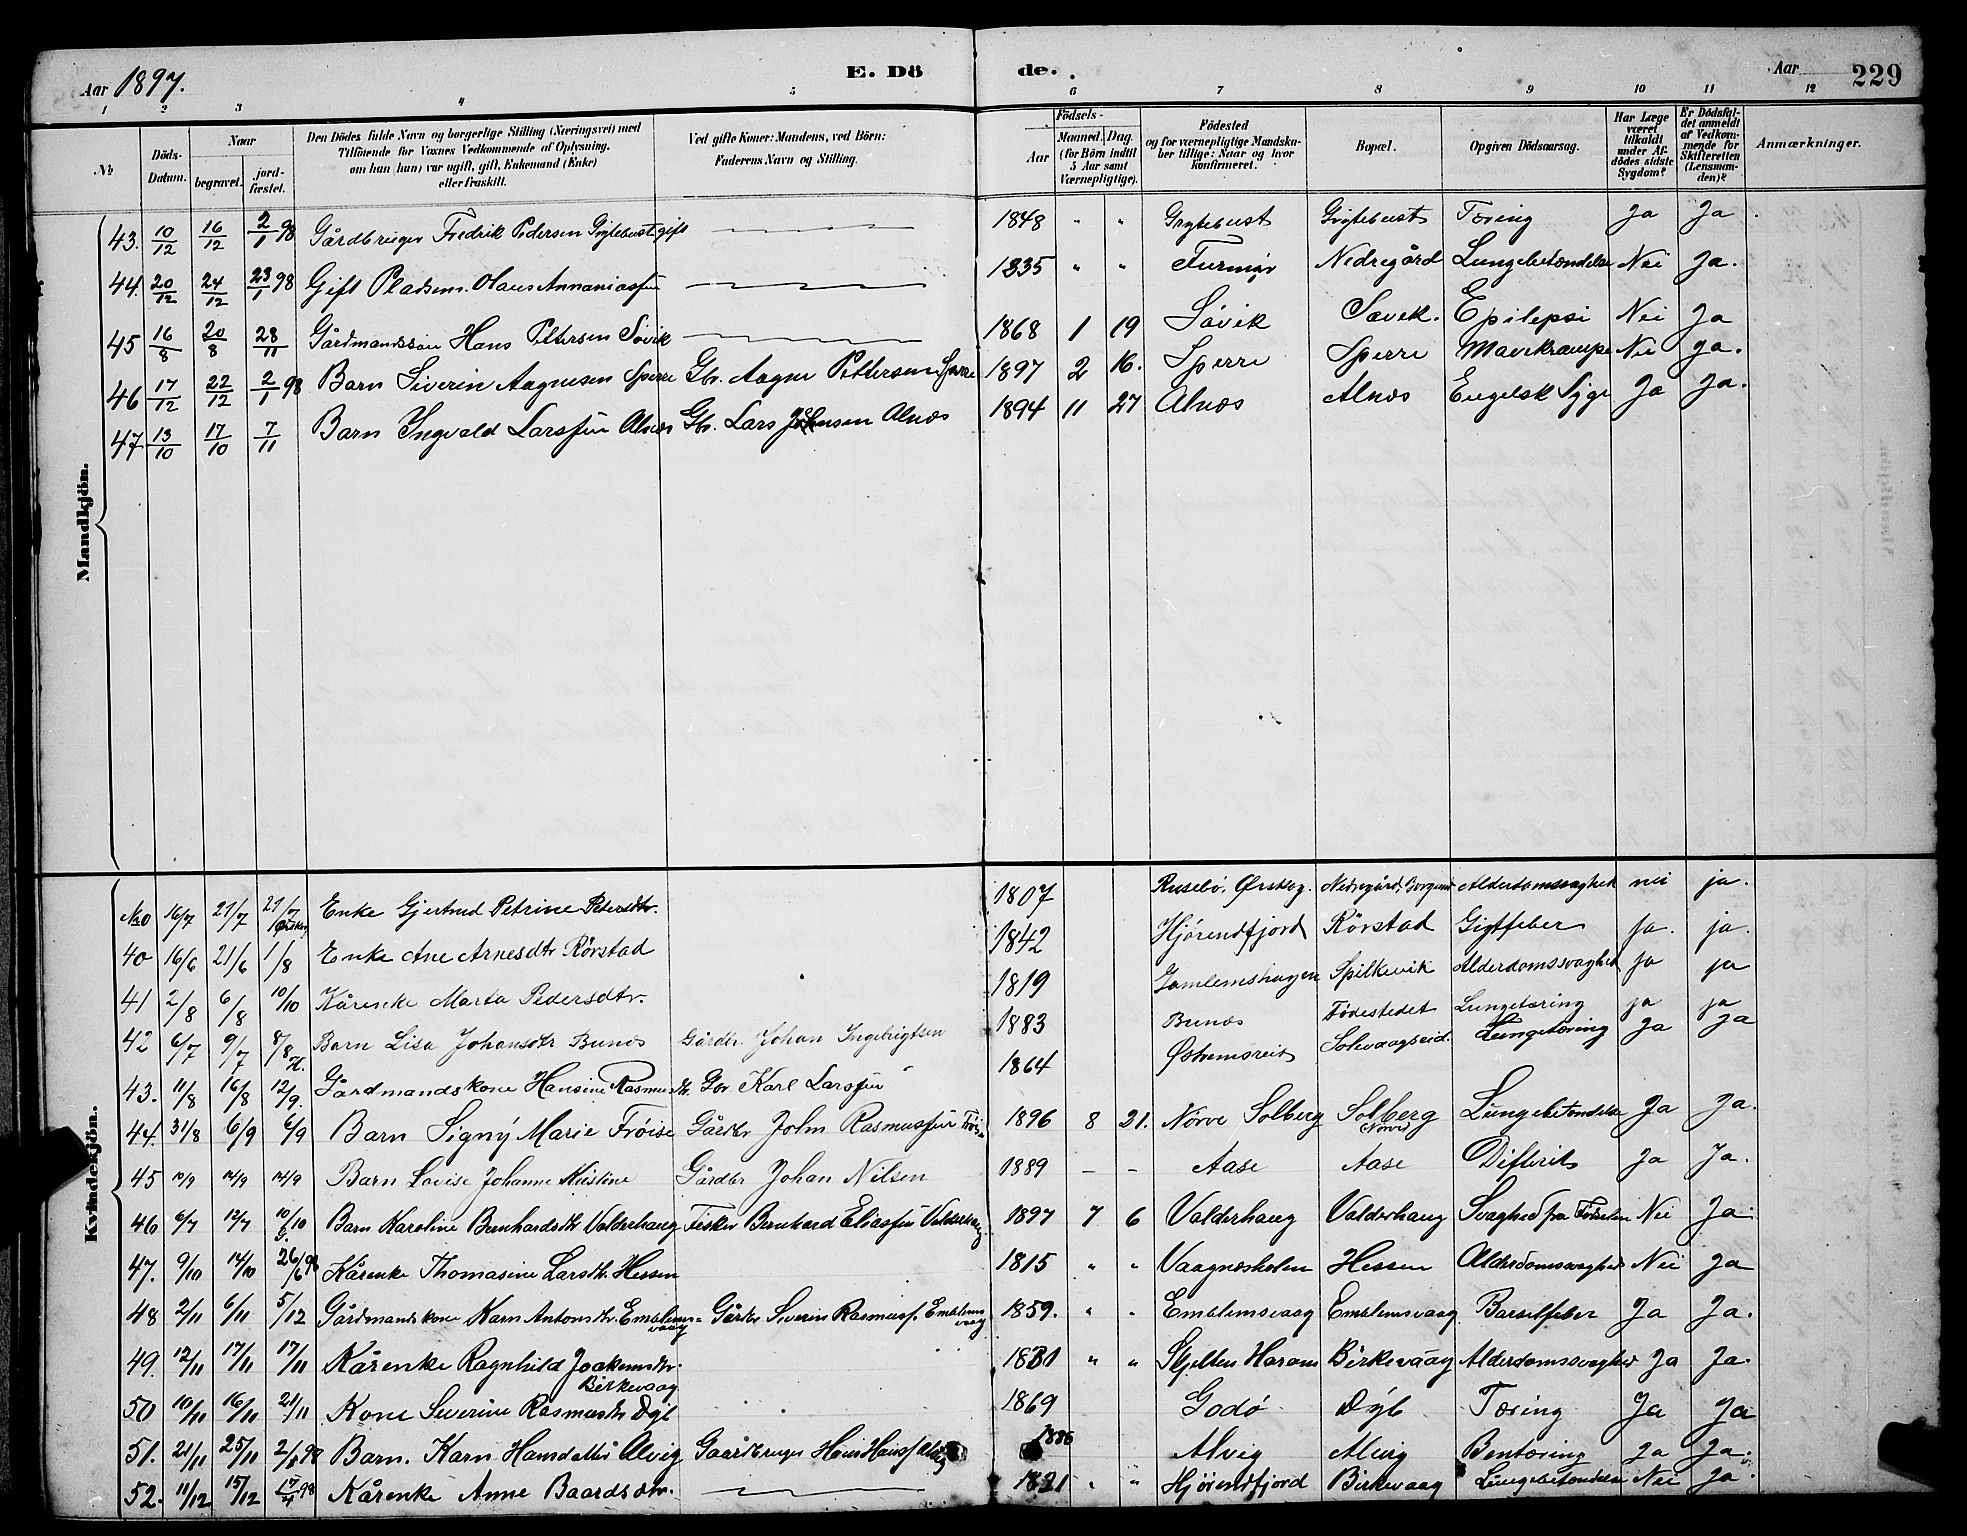 Aar 1897.
E. Dö de.
Aar 229
1 2 3 4 5 6 7 8 9 10 11 12
№ Döds-Datum. Naar begravet. jord-fæstet. Den Dödes fulde Navn og borgerlige Stilling (Næringsvei) med Tilföiende for Voxnes Vedkommende af Oplysning, om han (hun) var ugift, gift, Enkemand (Enke) eller fraskilt. Ved gifte Koner: Mandens, ved Börn: Faderens Navn og Stilling. Födsels- Aar Maaned. Dag. (for Börn indtil 5 Aar samt Værnepligtige). Födested og for værnepligtige Mandskaber tillige: Naar og hvor konfirmeret. Bopæl. Opgiven Dödsaarsag. Har Læge været tilkaldt under Afdödes sidste Sygdom? Er Dödsfaldet anmeldt af Vedkommende for Skifteretten (Lensmanden)? Anmærkninger.
Mandkjön.
43. 10/12 16/12 2/1 98 Gårdbruger Fredrik Pedersen Grytebust gift 1848 " " Grytebust Grytebust Tæring Ja Ja
44. 20/12 24/12 23/1 98 Gift Pladsm. Olaus Annaniassen 1835 " " Nedregård Lungebetændelse Nei Ja.
45 16/8 20/8 28/11 Gårdmandssøn Hans Pettersen Søvik 1868 1 19 Søvik Søvik. Epilepsi Nei Ja
46 17/12 22/12 2/1 98 Barn Siverin Aagnesen Sperre Gbr. Aagne Pettersen Sperre 1897 2 16. Sperre Sperre Mavekrampe Nei Ja.
47 13/10 17/10 7/11 Barn Ingvald Larssen Alnæs Gbr. Lars Johnsen Alnæs 1894 11 27 Alnæs Alnæs Engelsk Syge Ja Ja.
Kvindekjön.
16/7 21/7 21/7 Enke Gjertrud Petrine Petersdtr. 1807 Ørskog. Nedregård, Borgund Alderdomssvaghed nei ja.
40 16/6 21/6 1/8 Enke Ane Arnesdtr Rørstad 1842 Hjørendfjord Rörstad Gigtfeber ja. ja.
41 2/8 6/8 10/10 Kårenke Marta Pedersdtr. 1819 Gamlemshaugen Spilkevik Alderdomssvaghed Ja ja
42 6/7 9/7 8/8 Barn Lisa Johansdtr Bunæs Gårdbr. Johan Ingebrigtsen 1883 Bunæs Födestedet Lungetæring ja ja
43. 11/8 16/8 12/9. Gårdmandskone Hansine Rasmusdtr. Gbr Karl Larssen 1864 Østremsreit Solevaagseid. Lungetæring Ja Ja
44. 31/8 6/9 6/9 Barn Signy Marie Frøise Gårdbr John Rasmussen 1896 8 21. Nörve Solberg Solberg Nørve Lungebetændelse Ja Ja.
45 10/9 14/9 14/9 Barn Lovise Johanne Kristine Gårdbr Johan Nilsen 1889 - - Aase Aase Difterit Ja Ja.
46 6/7 12/7 10/10 Barn Karoline Bernhardsdtr Valderhaug Fisker Bernhard Eliassen Valderhaug 1897 7 6 Valderhaug Valderhaug Svaghed fra Fødselen Nei Ja
47. 9/10 14/10 26/6 98 Kårenke Thomasine Larsdtr. Hessen 1815 " " Vaagnæsholm Hessen Alderdomssvaghed Nei Ja
48 2/11 6/11 5/12 Gårdmandskone Karn Antonsdtr. Emblemsvaag Gårdbr Severin Rasmuss. Emblemsvaag 1859. " " Emblemsvaag Emblemsvaag Barselfeber Ja Ja.
49. 12/11 17/11 17/11 Kårenke Ragnhild Joakimsdtr. Birkevaag " " Skjelten Haram Birkevaag Alderdomssvaghed Ja Ja.
50 10/11 16/11 21/11 Kone Severine Rasmusdtr Dyb 1869 Godø Dyb Tæring Ja Ja
51. 21/11 25/11 2/1 98 Barn. Karn Hansdatter Alvig Gaardbruger Hans Hanss. Alvig 1886 Alvig Alvig Bentæring Ja Ja.
52. 11/12 15/12 17/4 98 Kårenke Anne Baardsdtr. 1821 " " Hjörendfjord Birkevaag Lungebetændelse Nei Ja